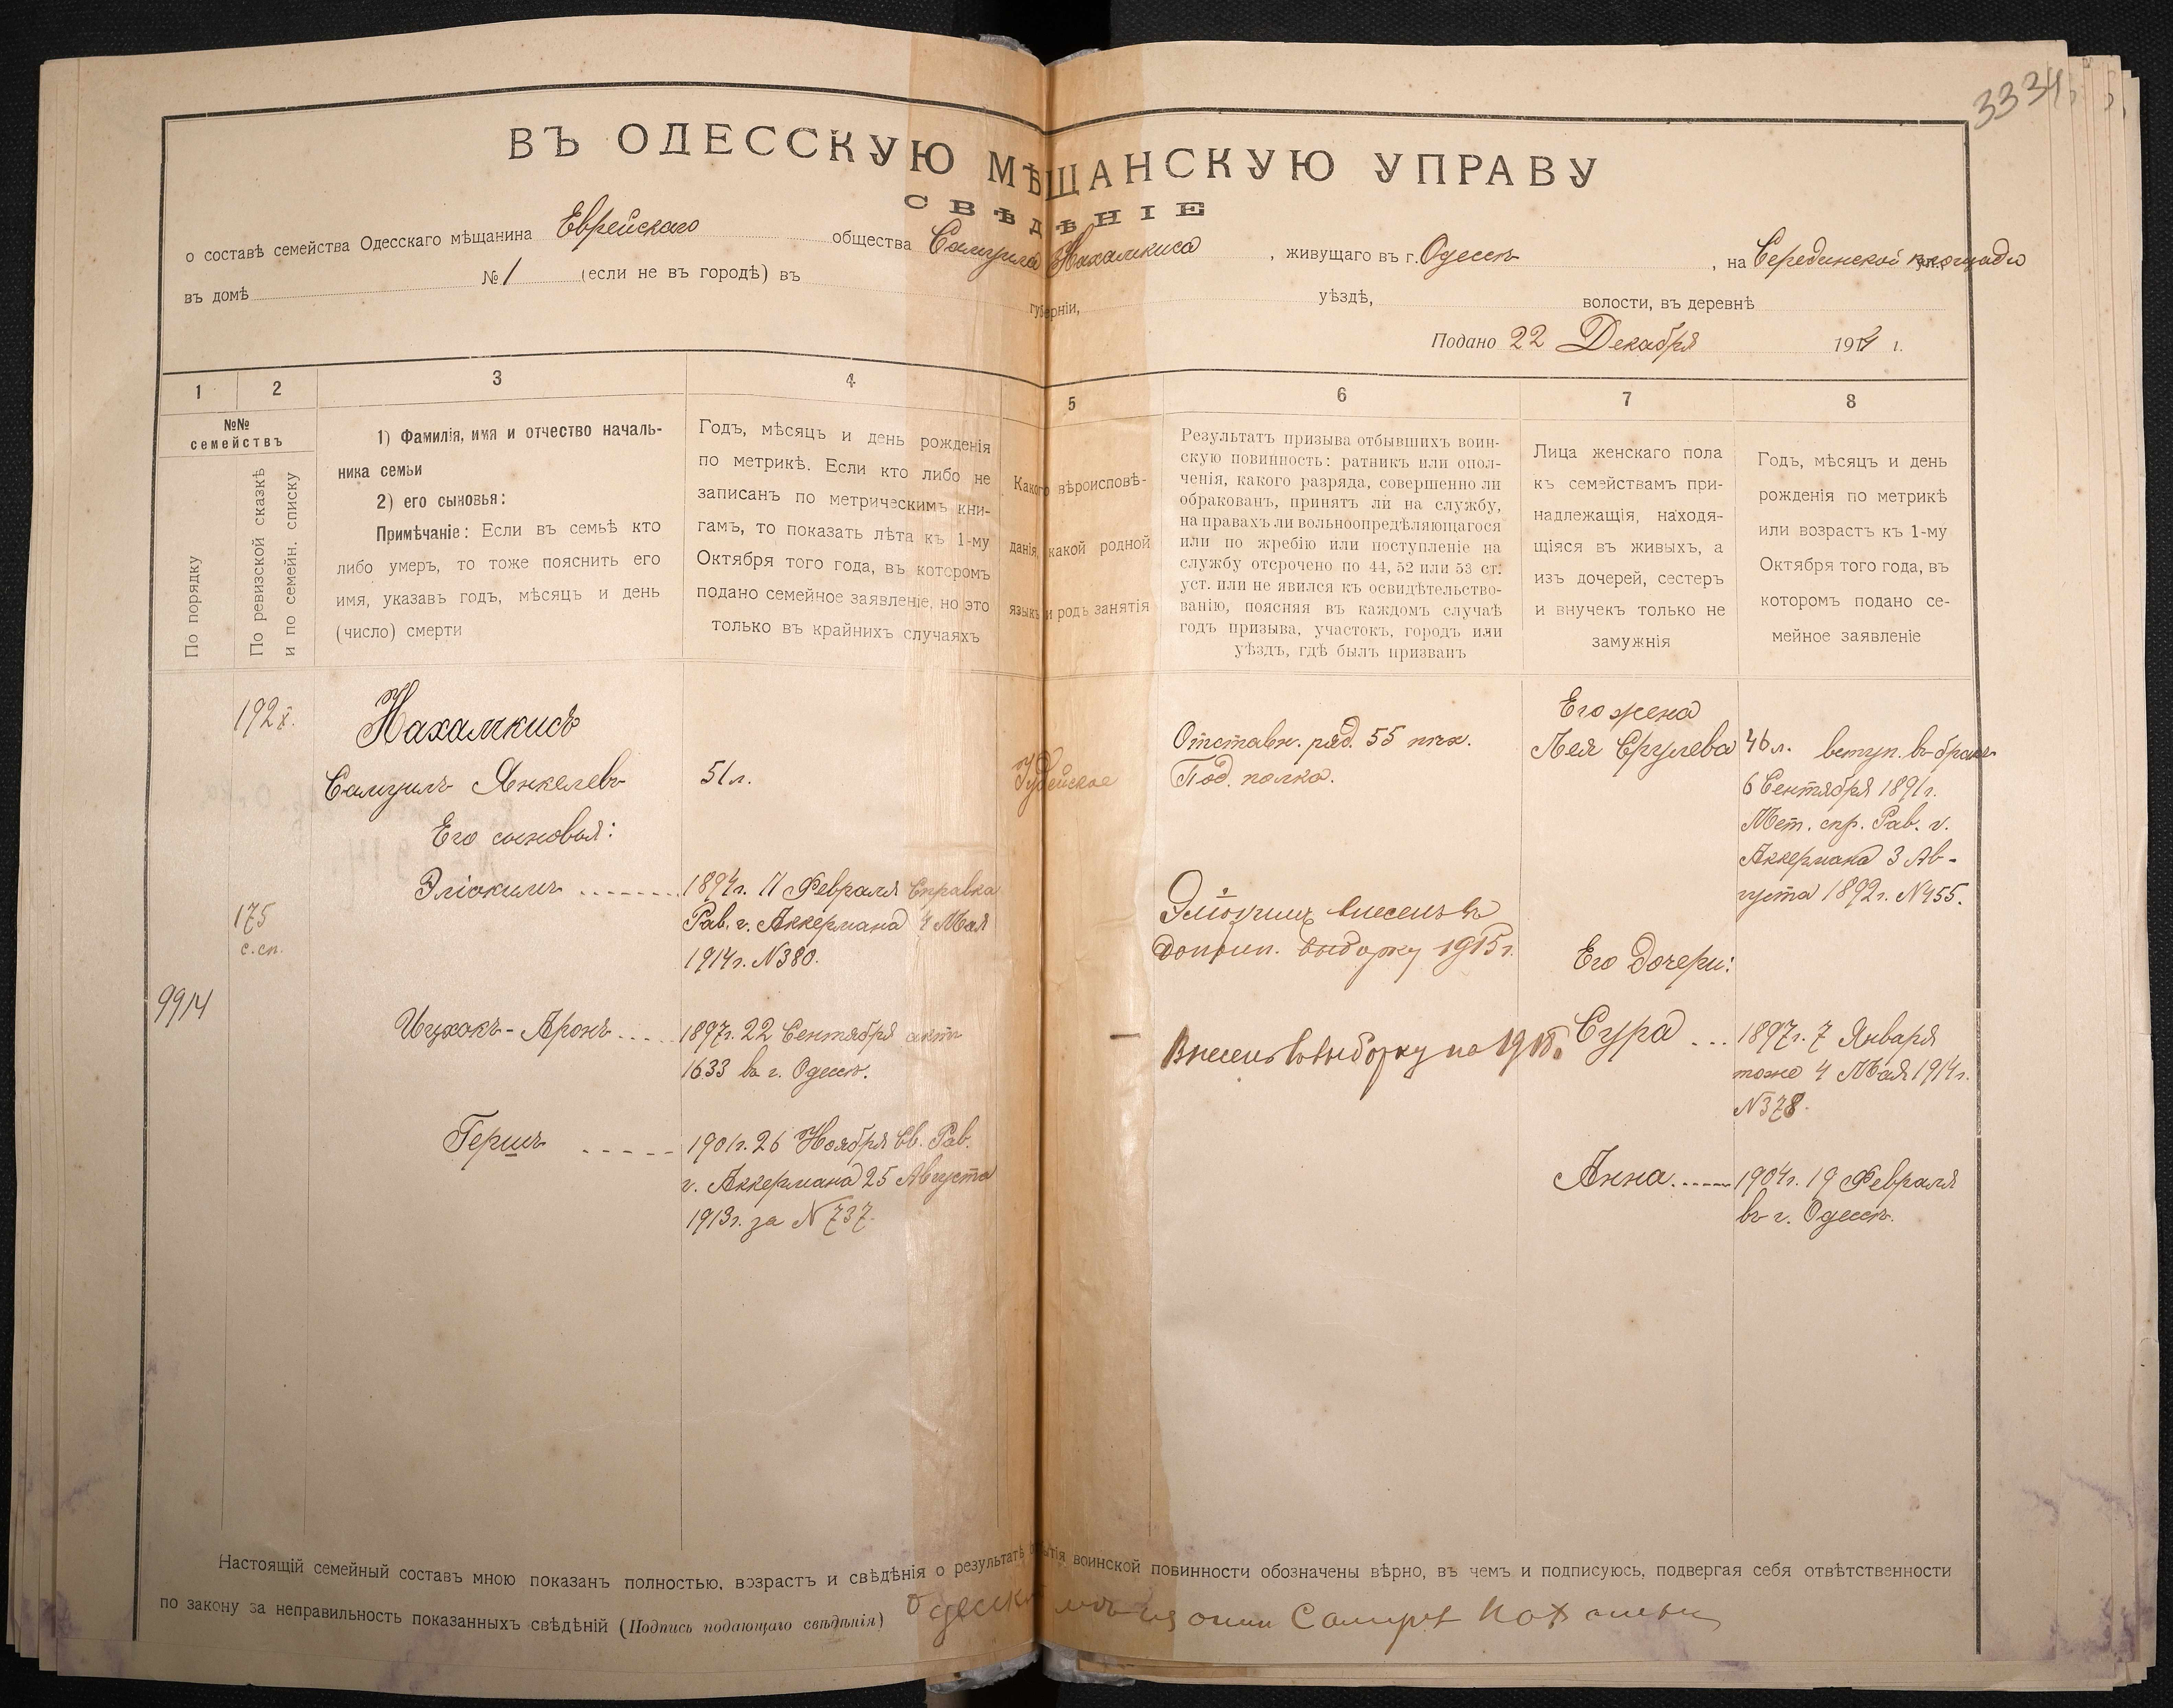 3334
ВЪ ОДЕССКУЮ МѢЩАНСКУЮ УПРАВУ
СВѢДѢНІЕ
о составѣ семейства Одесскаго мѣщанина Еврейскаго общества Самуила Нахамкиса, живущаго въ г. Одессѣ, на Серединской площади ул.,
въ домѣ № 1 (если не въ городѣ) въ губерніи, уѣздѣ, волости, въ деревнѣ
Подано 22 Декабря 1914 г.
1 2 3 4 5 6 7 8
№№
семействъ
По порядку
По ревизской сказкѣ
и по семейн. списку
1) Фамилія, имя и отчество началь-
ника семьи
2) его сыновья:
Примѣчаніе: Если въ семьѣ кто
либо умеръ, то тоже пояснить его
имя, указавъ годъ, мѣсяцъ и день
(число) смерти
Годъ, мѣсяцъ и день рожденія
по метрикѣ. Если кто либо не
записанъ по метрическимъ кни-
гамъ, то показать лѣта къ 1-му
Октября того года, въ которомъ
подано семейное заявленіе, но это
только въ крайнихъ случаяхъ
Какого вѣроисповѣ-
данія, какой родной
языкъ и родъ занятія
Результатъ призыва отбывшихъ воин-
скую повинность: ратникъ или опол-
ченія, какого разряда, совершенно ли
обракованъ, принятъ ли на службу,
на правахъ ли вольноопредѣляющагося
или по жребію или поступленіе на
службу отсрочено по 44, 52 или 53 ст.
уст. или не явился къ освидѣтельство-
ванію, поясняя въ каждомъ случаѣ
годъ призыва, участокъ, городъ или
уѣздъ, гдѣ былъ призванъ
Лица женскаго пола
къ семействамъ при-
надлежащія, находя-
щіяся въ живыхъ, а
изъ дочерей, сестеръ
и внучекъ только не
замужнія
Годъ, мѣсяцъ и день
рожденія по метрикѣ
или возрастъ къ 1-му
Октября того года, въ
которомъ подано се-
мейное заявленіе
192
175
с. сп.
9914
Нахамкисъ
Самуилъ Янкелевъ
Его сыновья:
Эліокимъ
Ицхокъ-Аронъ
Гершъ
51 л.
1894 г. 11 Февраля Справка
Рав. г. Аккермана 4 Мая
1914 г. N 380.
1897 г. 22 Сентября актъ
1633 въ г. Одессѣ.
1901 г. 26 Ноября Св. Рав.
г. Аккермана 25 Августа
1913 г. за N 737.
Іудейское
—
Отставн. ряд. 55 пѣх.
Под. полка.
внесенъ въ
допол. выборку 1915 г.
Внесенъ въ выборку на 1918 г.
Его жена
Лея Срулева
Его дочери:
Сура
Анна
46 л. вступ. въ бракъ
6 Сентября 1891 г.
Мет. спр. Рав. г.
Аккермана 3 Ав-
густа 1892 г. N 455.
1897 г. 7 Января
тоже 4 Мая 1914 г.
N 378.
1904 г. 19 Февраля
въ г. Одессѣ.
Настоящій семейный составъ мною показанъ полностью, возрастъ и свѣдѣнія о результатѣ отбытія воинской повинности обозначены вѣрно, въ чемъ и подписуюсь, подвергая себя отвѣтственности
по закону за неправильность показанныхъ свѣдѣній (Подпись подающаго свѣдѣнія)